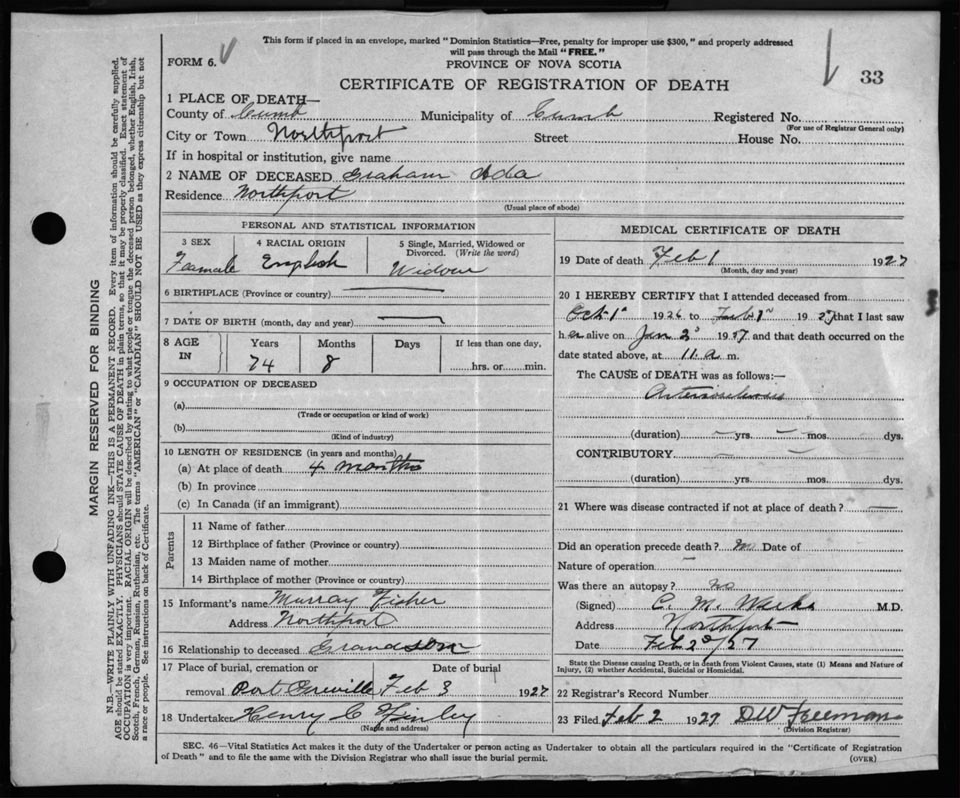 This form if placed in an envelope, marked "Dominion Statistics—Free, penalty for improper use $300," and properly addressed
will pass through the Mail "FREE."
FORM 6.
PROVINCE OF NOVA SCOTIA
33
CERTIFICATE OF REGISTRATION OF DEATH
1 PLACE OF DEATH—
County of Cumb Municipality of Cumb Registered No.
(For use of Registrar General only)
City or Town Northport Street House No.
If in hospital or institution, give name
2 NAME OF DECEASED Graham Ada
Residence Northport
(Usual place of abode)
PERSONAL AND STATISTICAL INFORMATION
3 SEX 4 RACIAL ORIGIN 5 Single, Married, Widowed or
Divorced. (Write the word)
Female English Widow
6 BIRTHPLACE (Province or country)
7 DATE OF BIRTH (month, day and year)
8 AGE IN Years Months Days If less than one day,
74 8 hrs. or min.
9 OCCUPATION OF DECEASED
(a)
(Trade or occupation or kind of work)
(b)
(Kind of industry)
10 LENGTH OF RESIDENCE (in years and months)
(a) At place of death 4 months
(b) In province
(c) In Canada (if an immigrant)
Parents
11 Name of father
12 Birthplace of father (Province or country)
13 Maiden name of mother
14 Birthplace of mother (Province or country)
15 Informant's name Murray Fisher
Address Northport
16 Relationship to deceased Grandson
17 Place of burial, cremation or Date of burial
removal Port Greville Feb 3 1927
18 Undertaker Henry C Finley
(Name and address)
MEDICAL CERTIFICATE OF DEATH
19 Date of death Feb 1 1927
(Month, day and year)
20 I HEREBY CERTIFY that I attended deceased from
Oct 1 1926 to Feb 1 1927 that I last saw
her alive on Jan 2 1927 and that death occurred on the
date stated above, at 11. a m.
The CAUSE of DEATH was as follows:—
Arteriosclerosis
(duration) — yrs. — mos. dys.
CONTRIBUTORY — —
(duration) yrs. mos. dys.
21 Where was disease contracted if not at place of death? —
Did an operation precede death? no Date of
Nature of operation —
Was there an autopsy? no
(Signed) C. M. M.D.
Address Northport
Date Feb 2/27
State the Disease causing Death, or in death from Violent Causes, state (1) Means and Nature of
Injury, (2) whether Accidental, Suicidal or Homicidal.
22 Registrar's Record Number
23 Filed Feb 2 1927 DW Freeman
(Division Registrar)
SEC. 46—Vital Statistics Act makes it the duty of the Undertaker or person acting as Undertaker to obtain all the particulars required in the "Certificate of Registration
of Death" and to file the same with the Division Registrar who shall issue the burial permit.
(OVER)
MARGIN RESERVED FOR BINDING
N.B.—WRITE PLAINLY WITH UNFADING INK—THIS IS A PERMANENT RECORD. Every item of information should be carefully supplied.
AGE should be stated EXACTLY. PHYSICIANS should STATE CAUSE OF DEATH in plain terms, so that it may be properly classified. Exact statement of
OCCUPATION is very important. RACIAL ORIGIN will be described by stating to what people or tongue the deceased person belonged, whether English, Irish,
Scotch, French, German, Russian, Ruthenian, etc. The terms "AMERICAN" or "CANADIAN" SHOULD NOT BE USED as they express citizenship but not
a race or people. See instructions on back of Certificate.